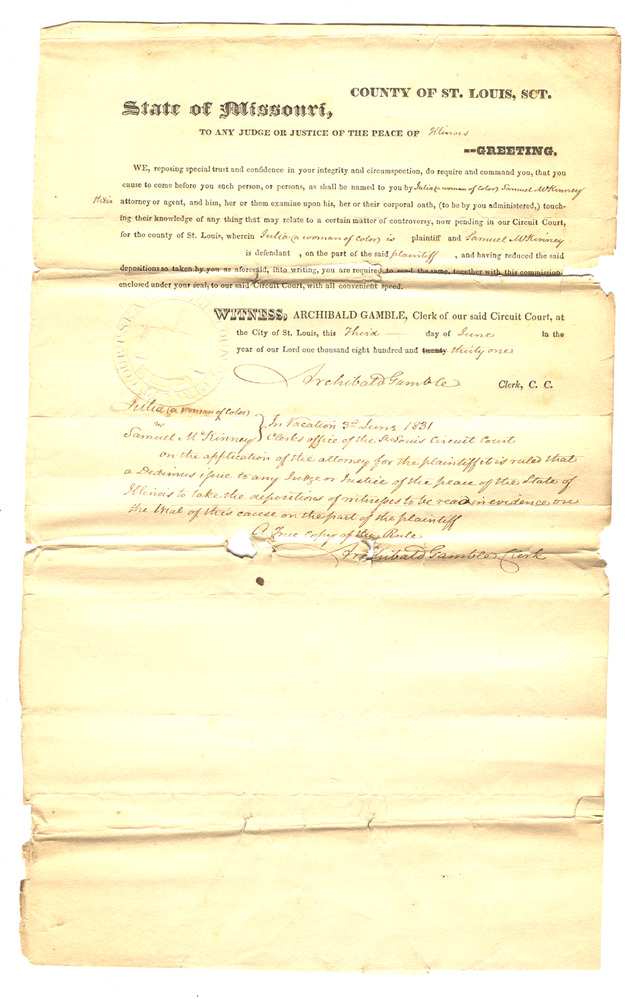 COUNTY OF ST. LOUIS, SCT.
State of Missouri,
TO ANY JUDGE OR JUSTICE OF THE PEACE OF Illinois
--GREETING.
WE, reposing special trust and confidence in your integrity and circumspection, do require and command you, that you
cause to come before you such person, or persons, as shall be named to you by Julia (a woman of Color) Samuel McKinney
their attorney or agent, and him, her or them examine upon his, her or their corporal oath, (to be by you administered,) touch-
ing their knowledge of any thing that may relate to a certain matter of controversy, now pending in our Circuit Court,
for the county of St. Louis, wherein Julia (a woman of color) is plaintiff and Samuel McKinney
is defendant , on the part of the said plaintiff , and having reduced the said
depositions so taken by you as aforesaid, into writing, you are required to send the same, together with this commission,
enclosed under your seal, to our said Circuit Court, with all convenient speed.
WITNESS, ARCHIBALD GAMBLE, Clerk of our said Circuit Court, at
the City of St. Louis, this Third — day of June in the
year of our Lord one thousand eight hundred and twenty thirty one
Archibald Gamble Clerk, C. C.
Julia (a woman of Color)
vs
Samuel McKinney } In Vacation 3rd June 1831
Clerks office of the St Louis Circuit Court
on the application of the attorney for the plaintiff it is ruled that
a Dedimus issue to any Judge or Justice of the peace of the State of
Illinois to take the depositions of witnesses to be read in evidence on
the trial of this cause on the part of the plaintiff
A True Copy of the Rule
Archibald Gamble Clerk